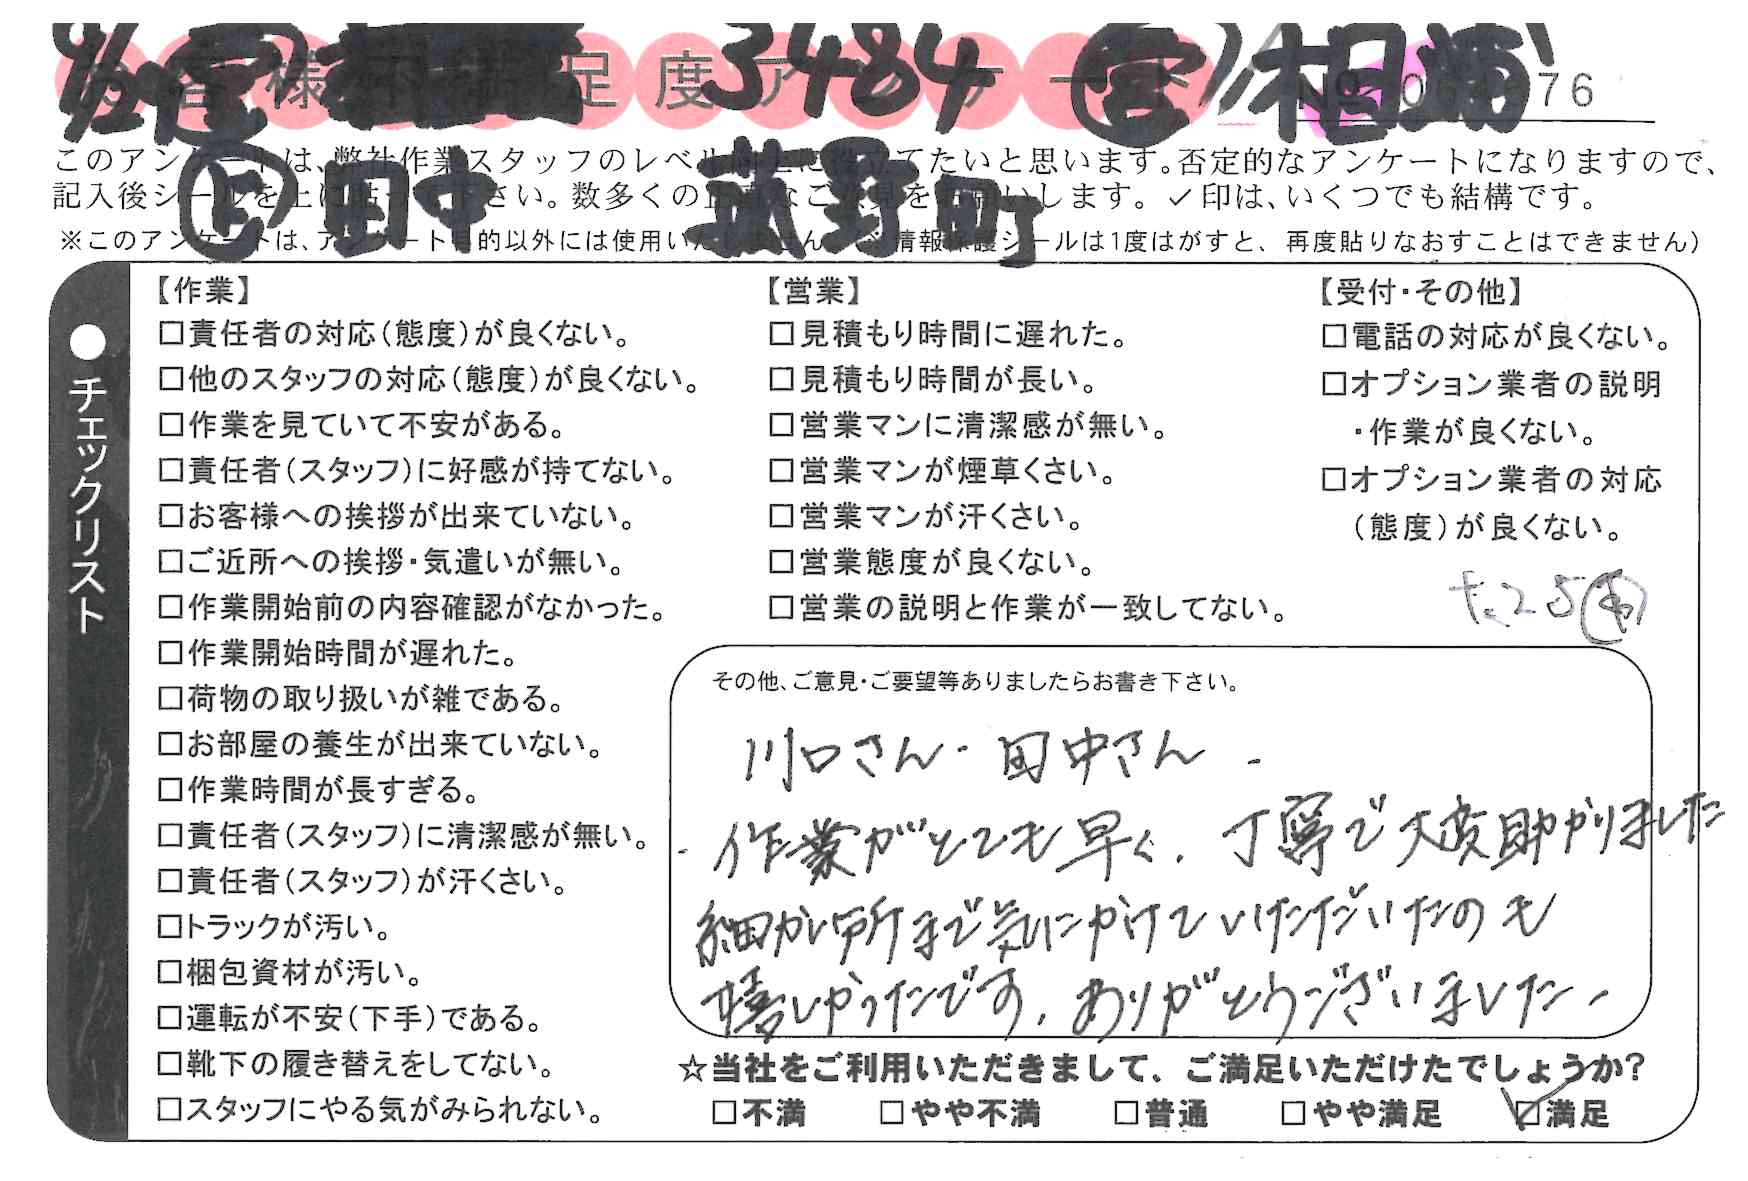 お客様不満足度アンケート
4/29 ㊂ 3484 ㊂ 相浦
No 76
このアンケートは、弊社作業スタッフのレベル向上に役立てたいと思います。否定的なアンケートになりますので、
記入後シールを上に貼って下さい。数多くの正直なご意見をお願いします。✓印は、いくつでも結構です。
田中 菰野町
※このアンケートは、アンケート目的以外には使用いたしません。(※情報保護シールは1度はがすと、再度貼りなおすことはできません)
●チェックリスト
【作業】
□責任者の対応(態度)が良くない。
□他のスタッフの対応(態度)が良くない。
□作業を見ていて不安がある。
□責任者(スタッフ)に好感が持てない。
□お客様への挨拶が出来ていない。
□ご近所への挨拶・気遣いが無い。
□作業開始前の内容確認がなかった。
□作業開始時間が遅れた。
□荷物の取り扱いが雑である。
□お部屋の養生が出来ていない。
□作業時間が長すぎる。
□責任者(スタッフ)に清潔感が無い。
□責任者(スタッフ)が汗くさい。
□トラックが汚い。
□梱包資材が汚い。
□運転が不安(下手)である。
□靴下の履き替えをしてない。
□スタッフにやる気がみられない。
【営業】
□見積もり時間に遅れた。
□見積もり時間が長い。
□営業マンに清潔感が無い。
□営業マンが煙草くさい。
□営業マンが汗くさい。
□営業態度が良くない。
□営業の説明と作業が一致してない。
【受付・その他】
□電話の対応が良くない。
□オプション業者の説明
・作業が良くない。
□オプション業者の対応
(態度)が良くない。
その他、ご意見・ご要望等ありましたらお書き下さい。
川口さん・田中さん
作業がとても早く、丁寧で大変助かりました
細かい所まで気にかけていただいたのも
嬉しかったです。ありがとうございました
☆当社をご利用いただきまして、ご満足いただけたでしょうか?
□不満 □やや不満 □普通 □やや満足 ☑満足